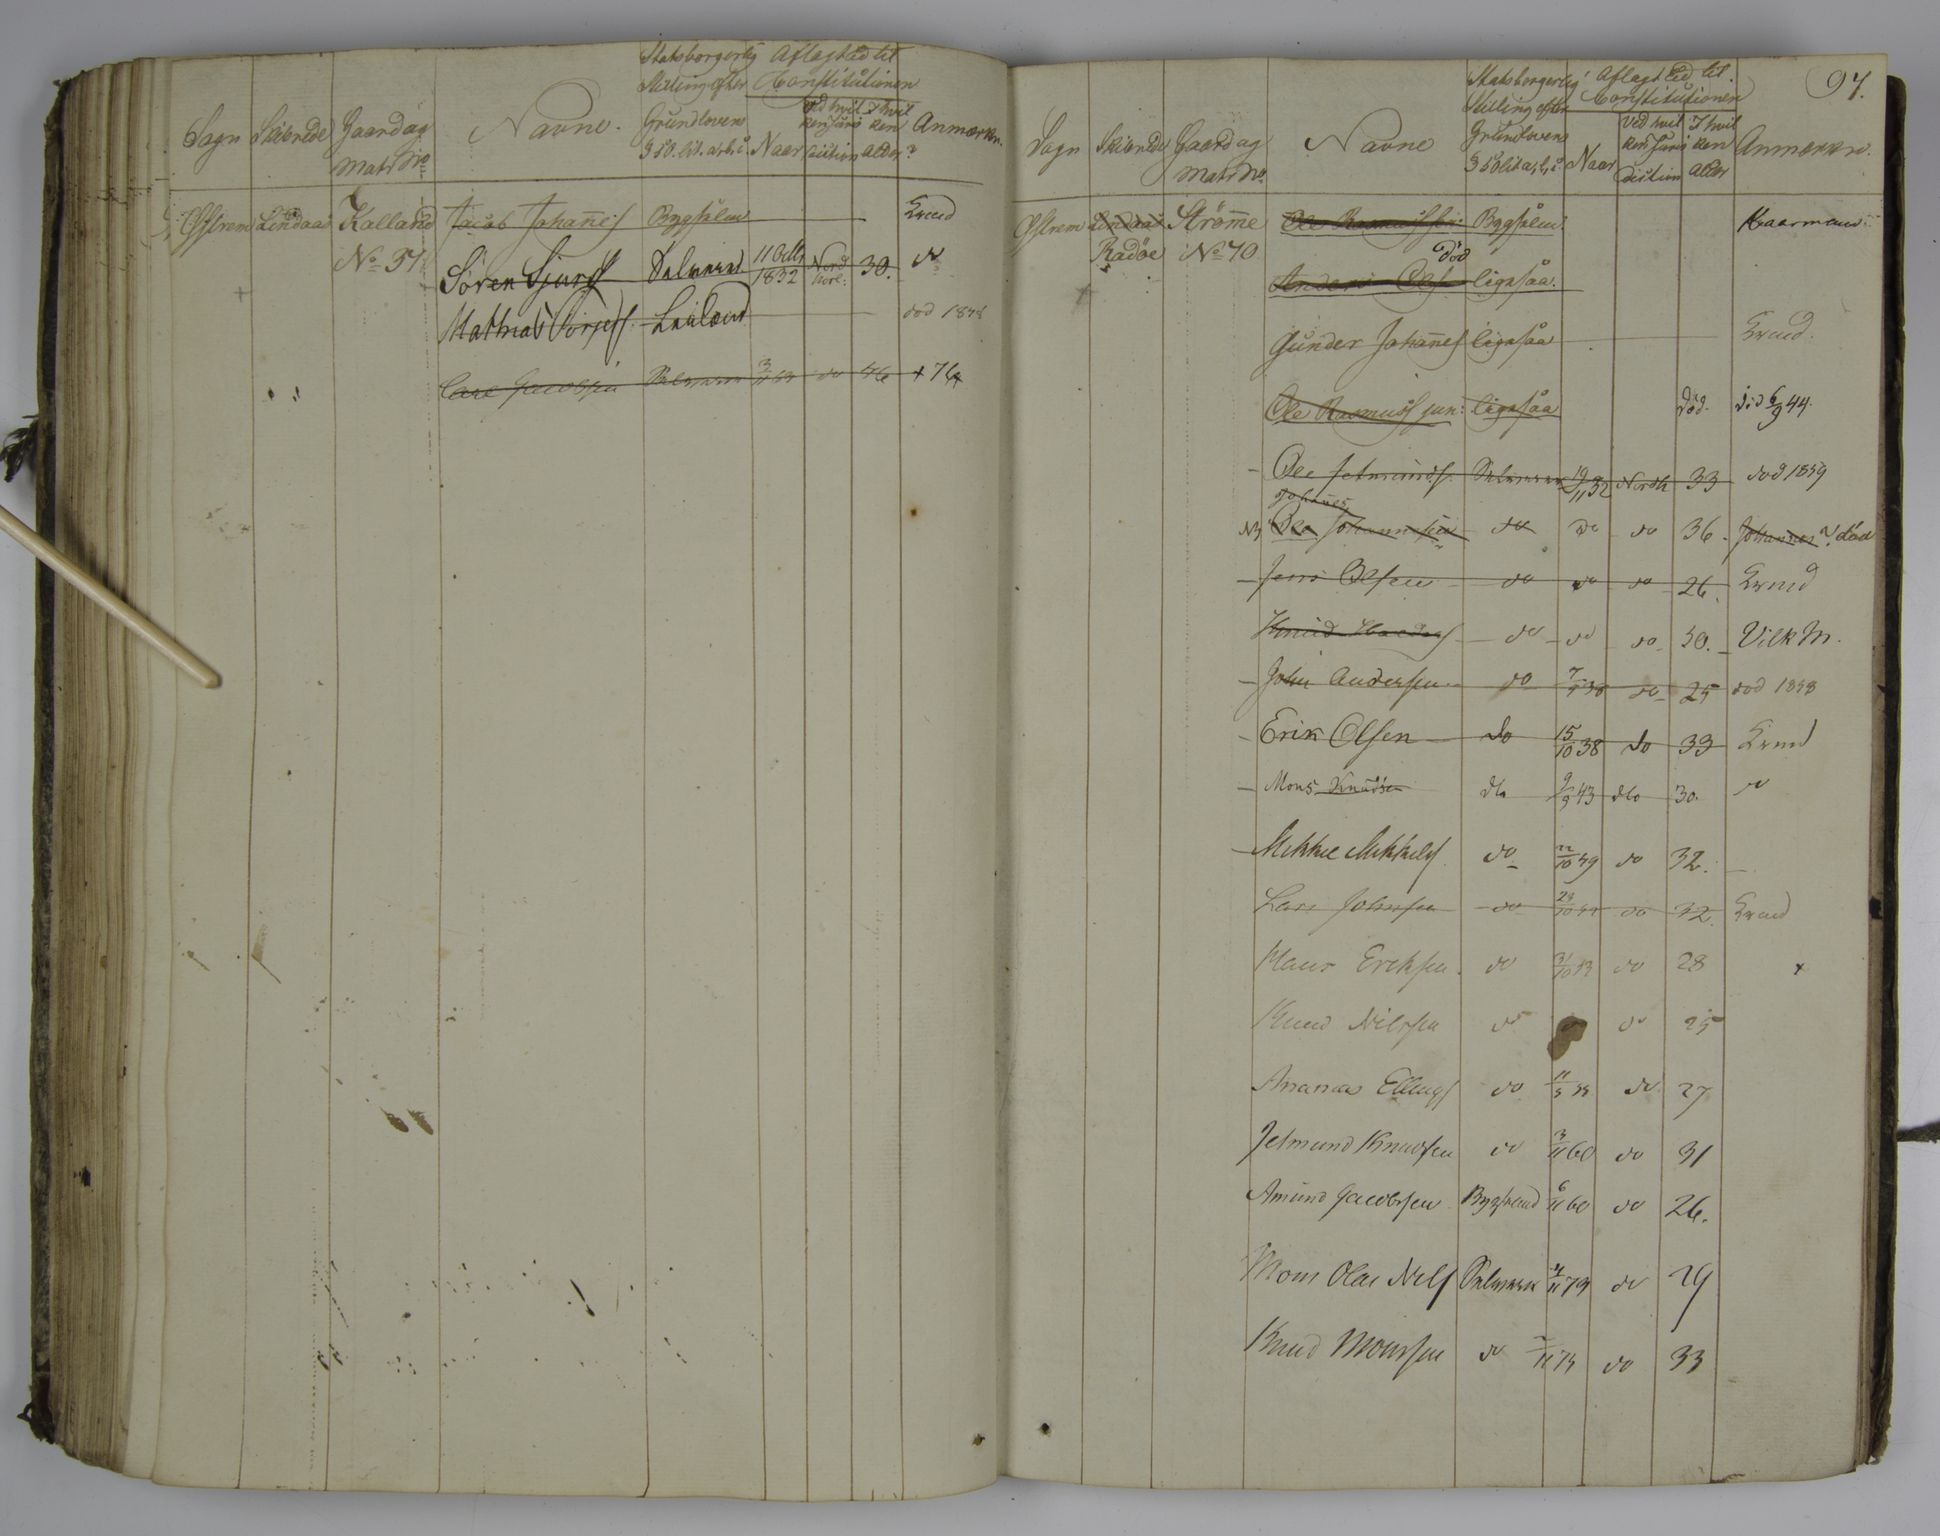 Sogn Skibrede Gaard og Matr No Navne. Statsborgerlig Stilling efter Grundlovens § 50. lit. a, b, c. Aflagt Ed til Constitutionen Naar Ved hvilken Jurisdiction I hvilken Alder? Anmærkn.
Østrem Lindaas Kalland Jacob Johannes Bygselm Kaard
No 57. Sören Sjurs Selveier 11 Octbr 1832 Nordhorl: 30. do
Mathias Börges Leilænd död 1848
Carl Jacobsen Selveier do 46 + 76
97.
Sogn Skibrede Gaard og Matr No Navne Statsborgerlig Stilling efter Grundlovens § 50 lit a, b, c. Aflagt Ed til Constitutionen Naar Ved hvilken Jurisdiction I hvilken Alder Anmærkn.
Østrem Lindaas Strömme Ole Rasmussen Bygselm Kaarmand
Radöe No 70 död
Anders Olss ligesaa.
Gunder Johannes ligesaa
Ole Rasmuss jun: ligesaa död. död 6/9 44.
Ole Jetmunds. Selveier 19/11 32 Nordh 33 död 1859
Johannes
Ole Johannesen do do do 36. Johannes död
Jens Olsen do do do 26.
Knud do do do 30. Vilk M.
John Andersen do 7/5 38 do 25 död 1858
Erik Olsen do 15/10 38 do 33
Mons Knudsen dto 9/9 43 dto 30. do
Mikkel Mikkels do 22/10 49 do 32.
Lars Johnsen do do 32.
Hans Eriksen do 31/10 53 do 28 x
Knud Nilssen do do 25
Ananias Ellings do do 27
Jetmund Knudsen do 3/11 60 do 31
Amund Jacobsen Bygselmd 6/11 60 do 26.
Mons Olai Nils Selveier 4/11 79 do 29
Knud Monssen do do 33